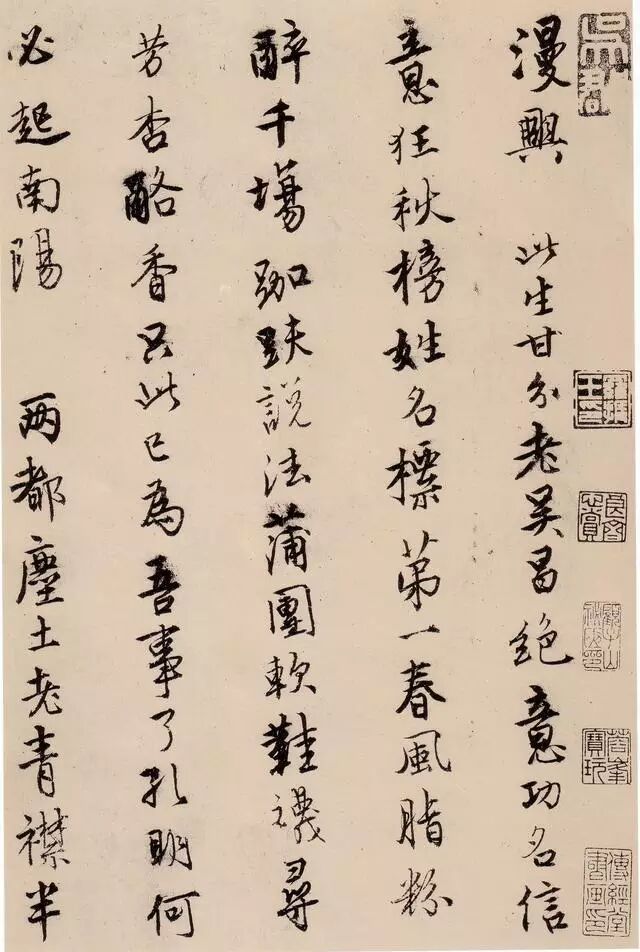 漫興 此生甘分老吳昌絕意功名信
意狂秋榜姓名標第一春風脂粉
醉千場跏趺說法蒲團軟鞋襪尋
芳杏酪香只此已為吾事了孔明何
必起南陽 兩都塵土老青襟半
蓉峯
寶玩
傳經堂
書畫印